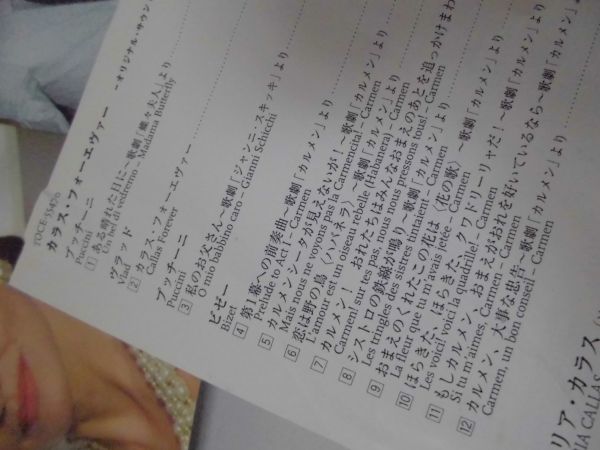 TOCE-55456
カラス・フォーエヴァー －オリジナル・サウン
プッチーニ
Puccini
1 ある晴れた日に～歌劇「蝶々夫人」より
Un bel dì vedremo - Madama Butterfly
ヴラッド
Vlad
2 カラス・フォーエヴァー
Callas Forever
プッチーニ
Puccini
3 私のお父さん～歌劇「ジャンニ・スキッキ」より
O mio babbino caro - Gianni Schicchi
ビゼー
Bizet
4 第1幕への前奏曲～歌劇「カルメン」より
Prelude to Act 1 - Carmen
5 カルメンシータが見えないが！～歌劇「カルメン」より
Mais nous ne voyons pas la Carmencita! - Carmen
6 恋は野の鳥（ハバネラ）～歌劇「カルメン」より
L'amour est un oiseau rebelle (Habanera) - Carmen
7 カルメン！ おれたちはみんなおまえのあとを追っかけまわ
Carmen! sur tes pas, nous nous pressons tous! - Carmen
8 シストロの鉄線が鳴り～歌劇「カルメン」より
Les tringles des sistres tintaient - Carmen
9 おまえのくれたこの花は〈花の歌〉～歌劇「カルメン」より
La fleur que tu m'avais jetée - Carmen
10 ほらきた、ほらきた、クワドリーリャだ！～歌劇「カルメン」より
Les voici! voici la quadrille! - Carmen
11 もしカルメン、おまえがおれを好いているなら～歌劇「カルメン」より
Si tu m'aimes, Carmen - Carmen
12 カルメン、大事な忠告～歌劇「カルメン」より
Carmen, un bon conseil - Carmen
リア・カラス
IA CALLAS